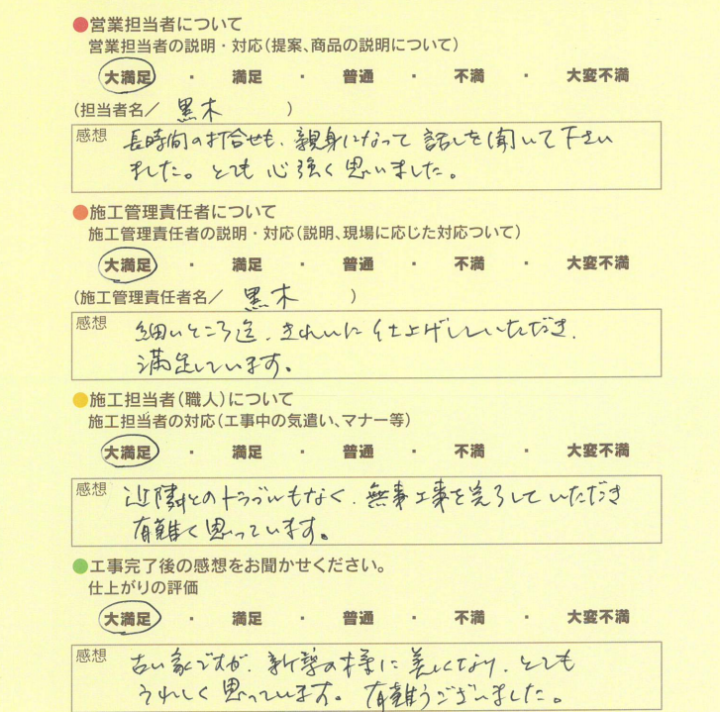 ●営業担当者について
営業担当者の説明・対応(提案、商品の説明について)
大満足 ・ 満足 ・ 普通 ・ 不満 ・ 大変不満
(担当者名／ 黒木 )
感想 長時間の打合せも、親身になって 話しを聞いて下さい
ました。とても 心強く思いました。
●施工管理責任者について
施工管理責任者の説明・対応(説明、現場に応じた対応ついて)
大満足 ・ 満足 ・ 普通 ・ 不満 ・ 大変不満
(施工管理責任者名／ 黒木 )
感想 細いところ迄、きれいに仕上げしていただき、
満足しています。
●施工担当者(職人)について
施工担当者の対応(工事中の気遣い、マナー等)
大満足 ・ 満足 ・ 普通 ・ 不満 ・ 大変不満
感想 近隣とのトラブルもなく、無事工事を完了していただき
有難く思っています。
●工事完了後の感想をお聞かせください。
仕上がりの評価
大満足 ・ 満足 ・ 普通 ・ 不満 ・ 大変不満
感想 古い家ですが、新築の様に美しくなり、とても
うれしく思っています。有難うございました。